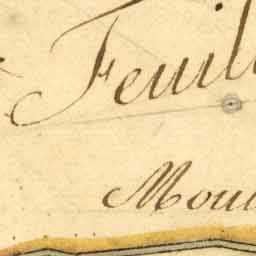 Feuill
Mou